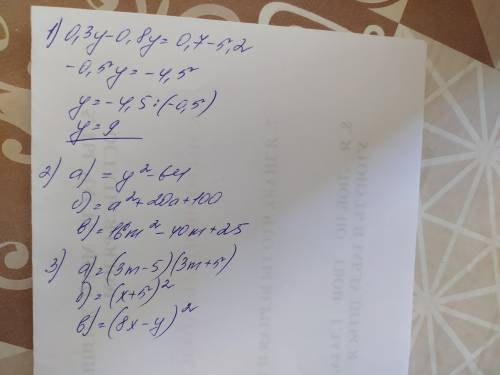 1) 0,3y-0,8y=0,7-5,2
-0,5y=-4,5
y=-4,5:(-0,5)
y=9
2) а) = y²-64
б) = a²+20a+100
в) = 16m²-40m+25
3) а) = (3m-5)(3m+5)
б) = (x+5)²
в) = (8x-y)²